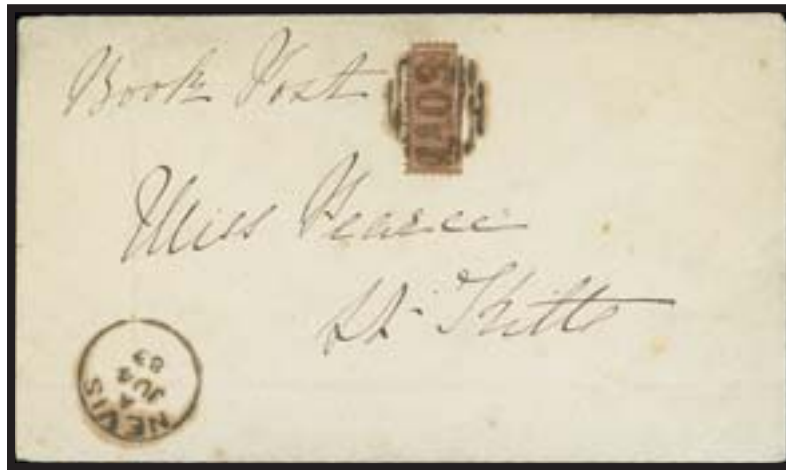 Book Post
A09
Miss Pearce
St. Kitts
NEVIS
A
JU
83